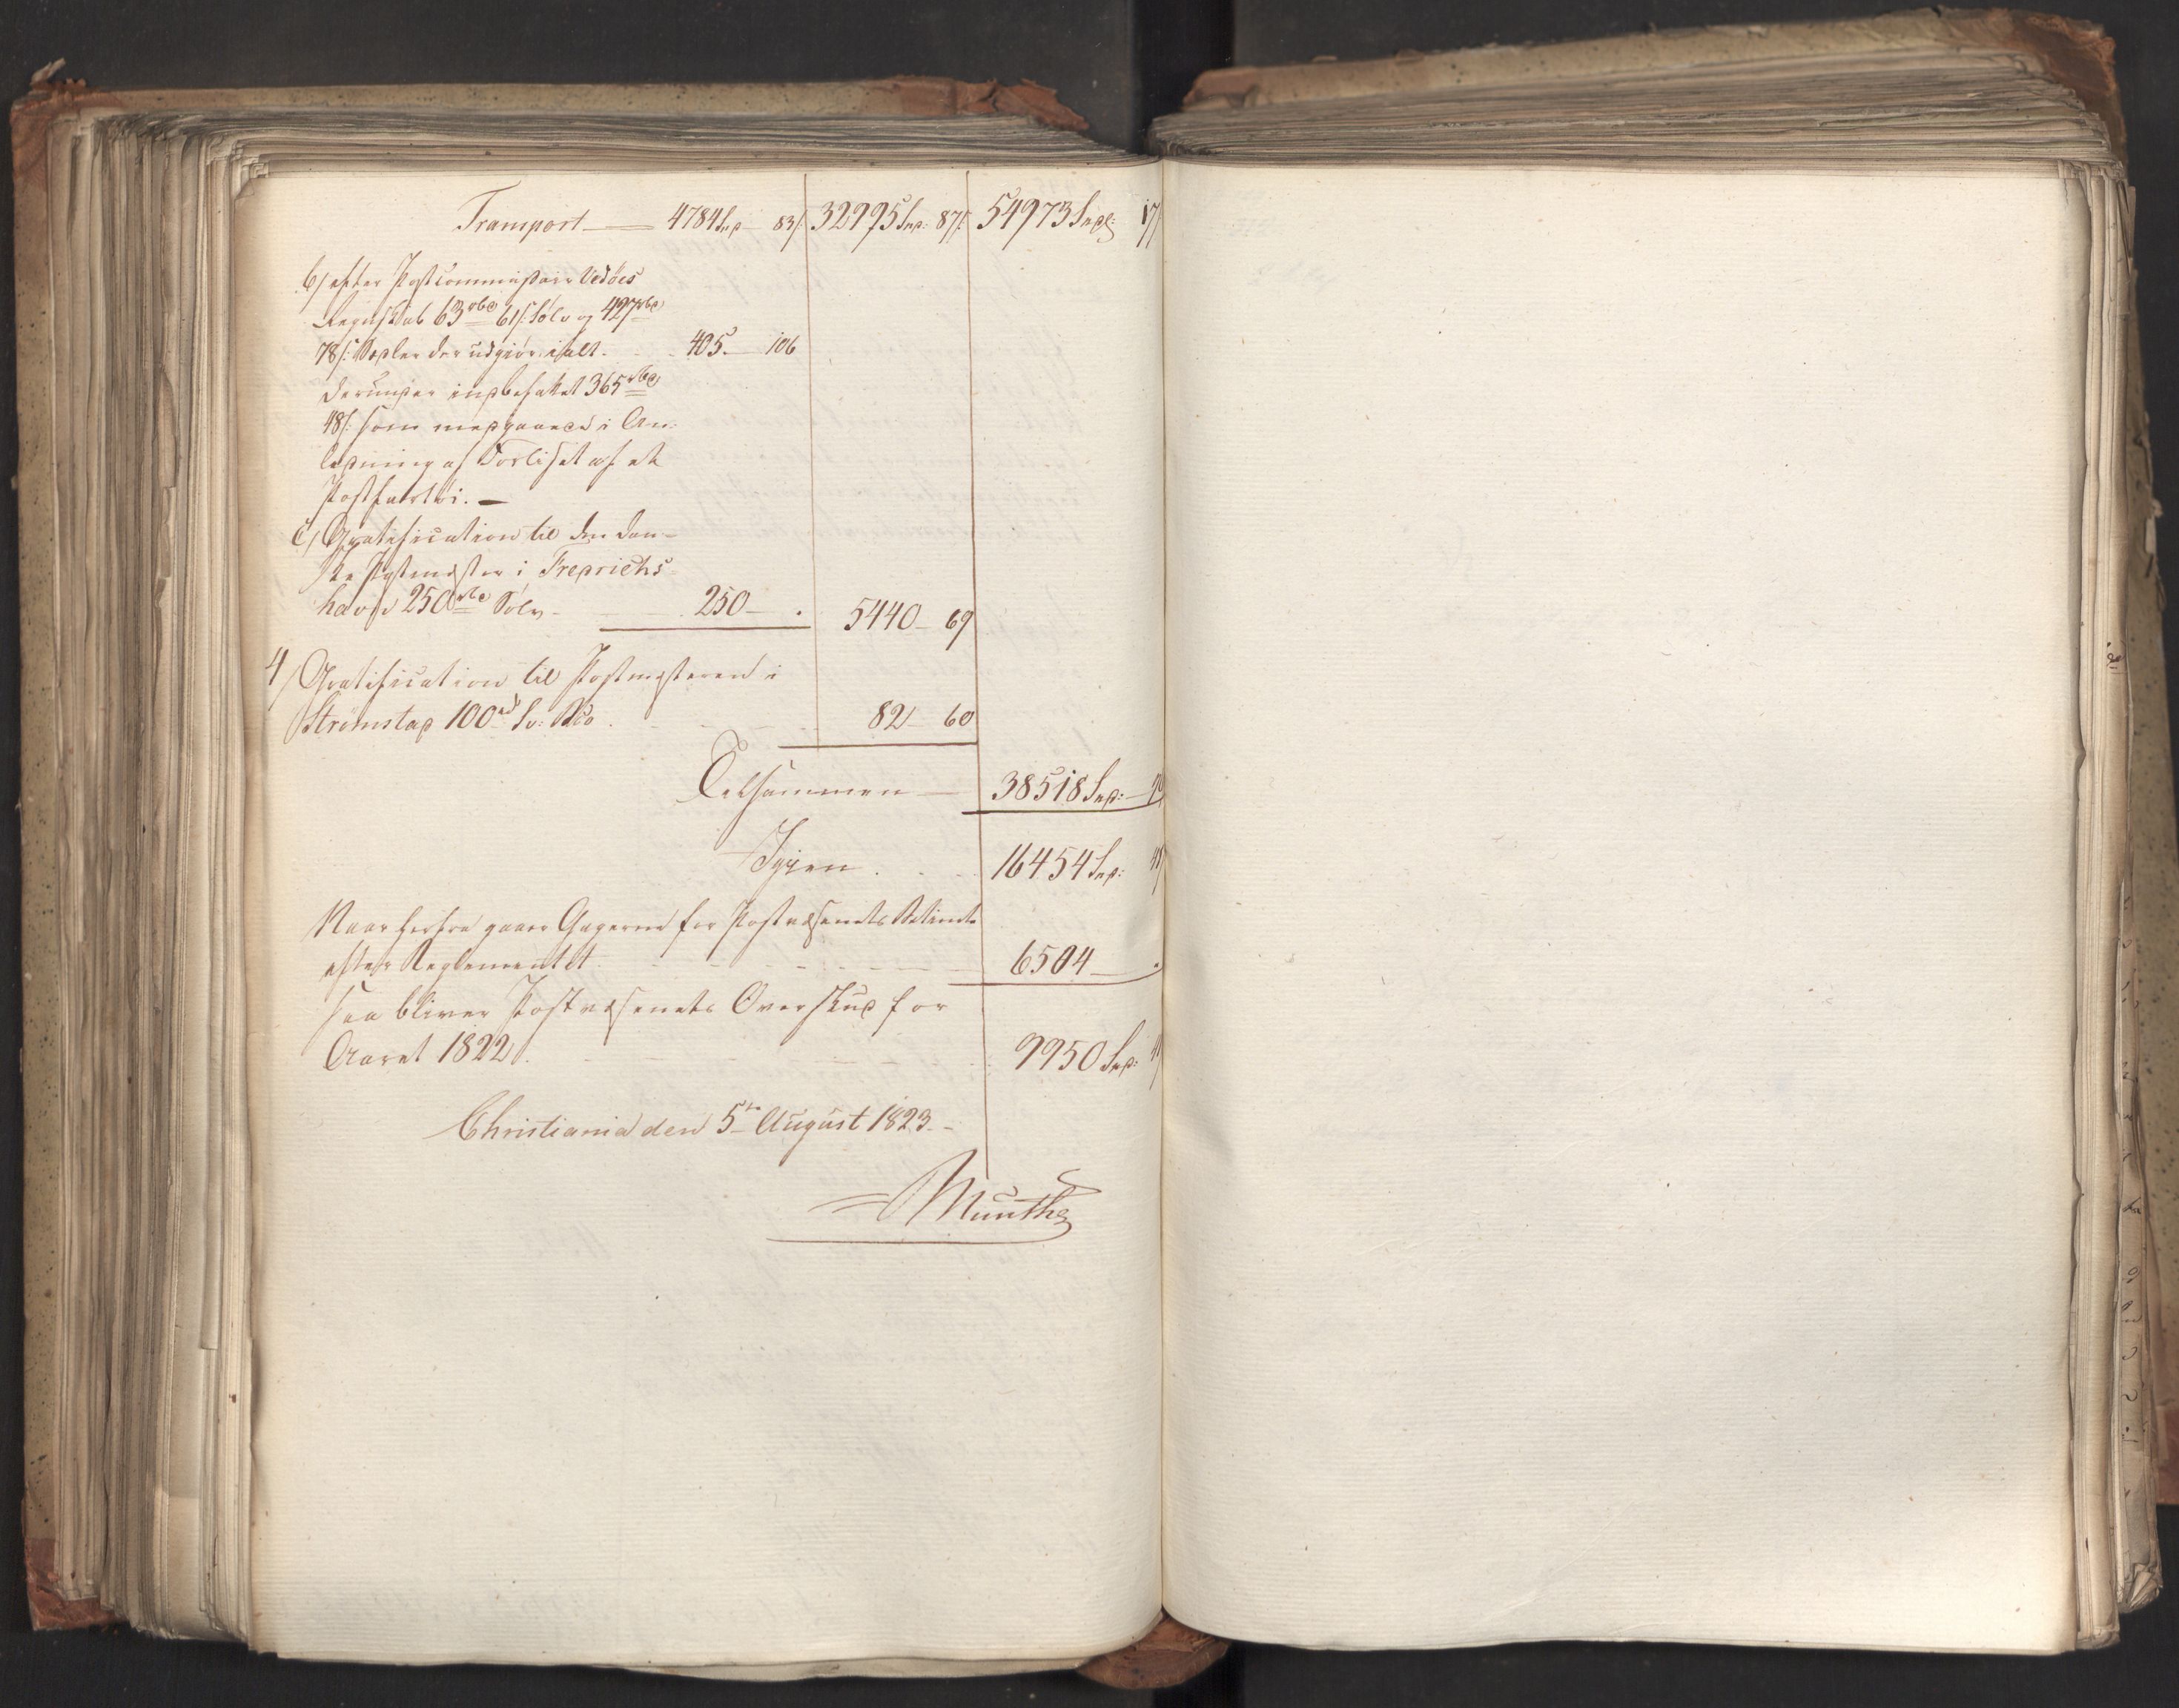 Transport — 4784 Spd 83 ß 32995 Spd: 87 ß 54973 Spd: 17 ß
b/ efter Postcommissair Vedöes
Regnskab 63 rbd 61 ß: Sölv og 427 rbd
78 ß: Sedler der udgiör ialt . . 405. — 106
derunder indbefattet 365 rbd
48 ß: som medgaaed i An-
ledning af Forliset af et
Postfartöi. —
c/ Gratification til den dan-
ske Postmester i Fredrichs-
havn 250 rbd Sölv — 250 — . 5440 — 69
4/ Gratification til Postmesteren i
Strömstad 100 rd Sv: Bco . 82 — 60
Tilsammen — 38518 Spd: —
Igjen . . . 16454 Spd:
Naar herfra gaaer Gagerne for Postvæsenets
efter Reglementet — 6504 — .
saa bliver Postvæsenets Overskud for
Aaret 1822 . 9950 Spd:
Christiania den 5te August 1823. —
Munthe